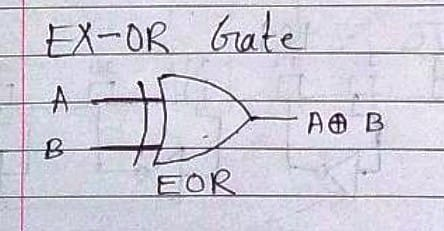 EX-OR Gate
A
A⊕ B
B
EOR